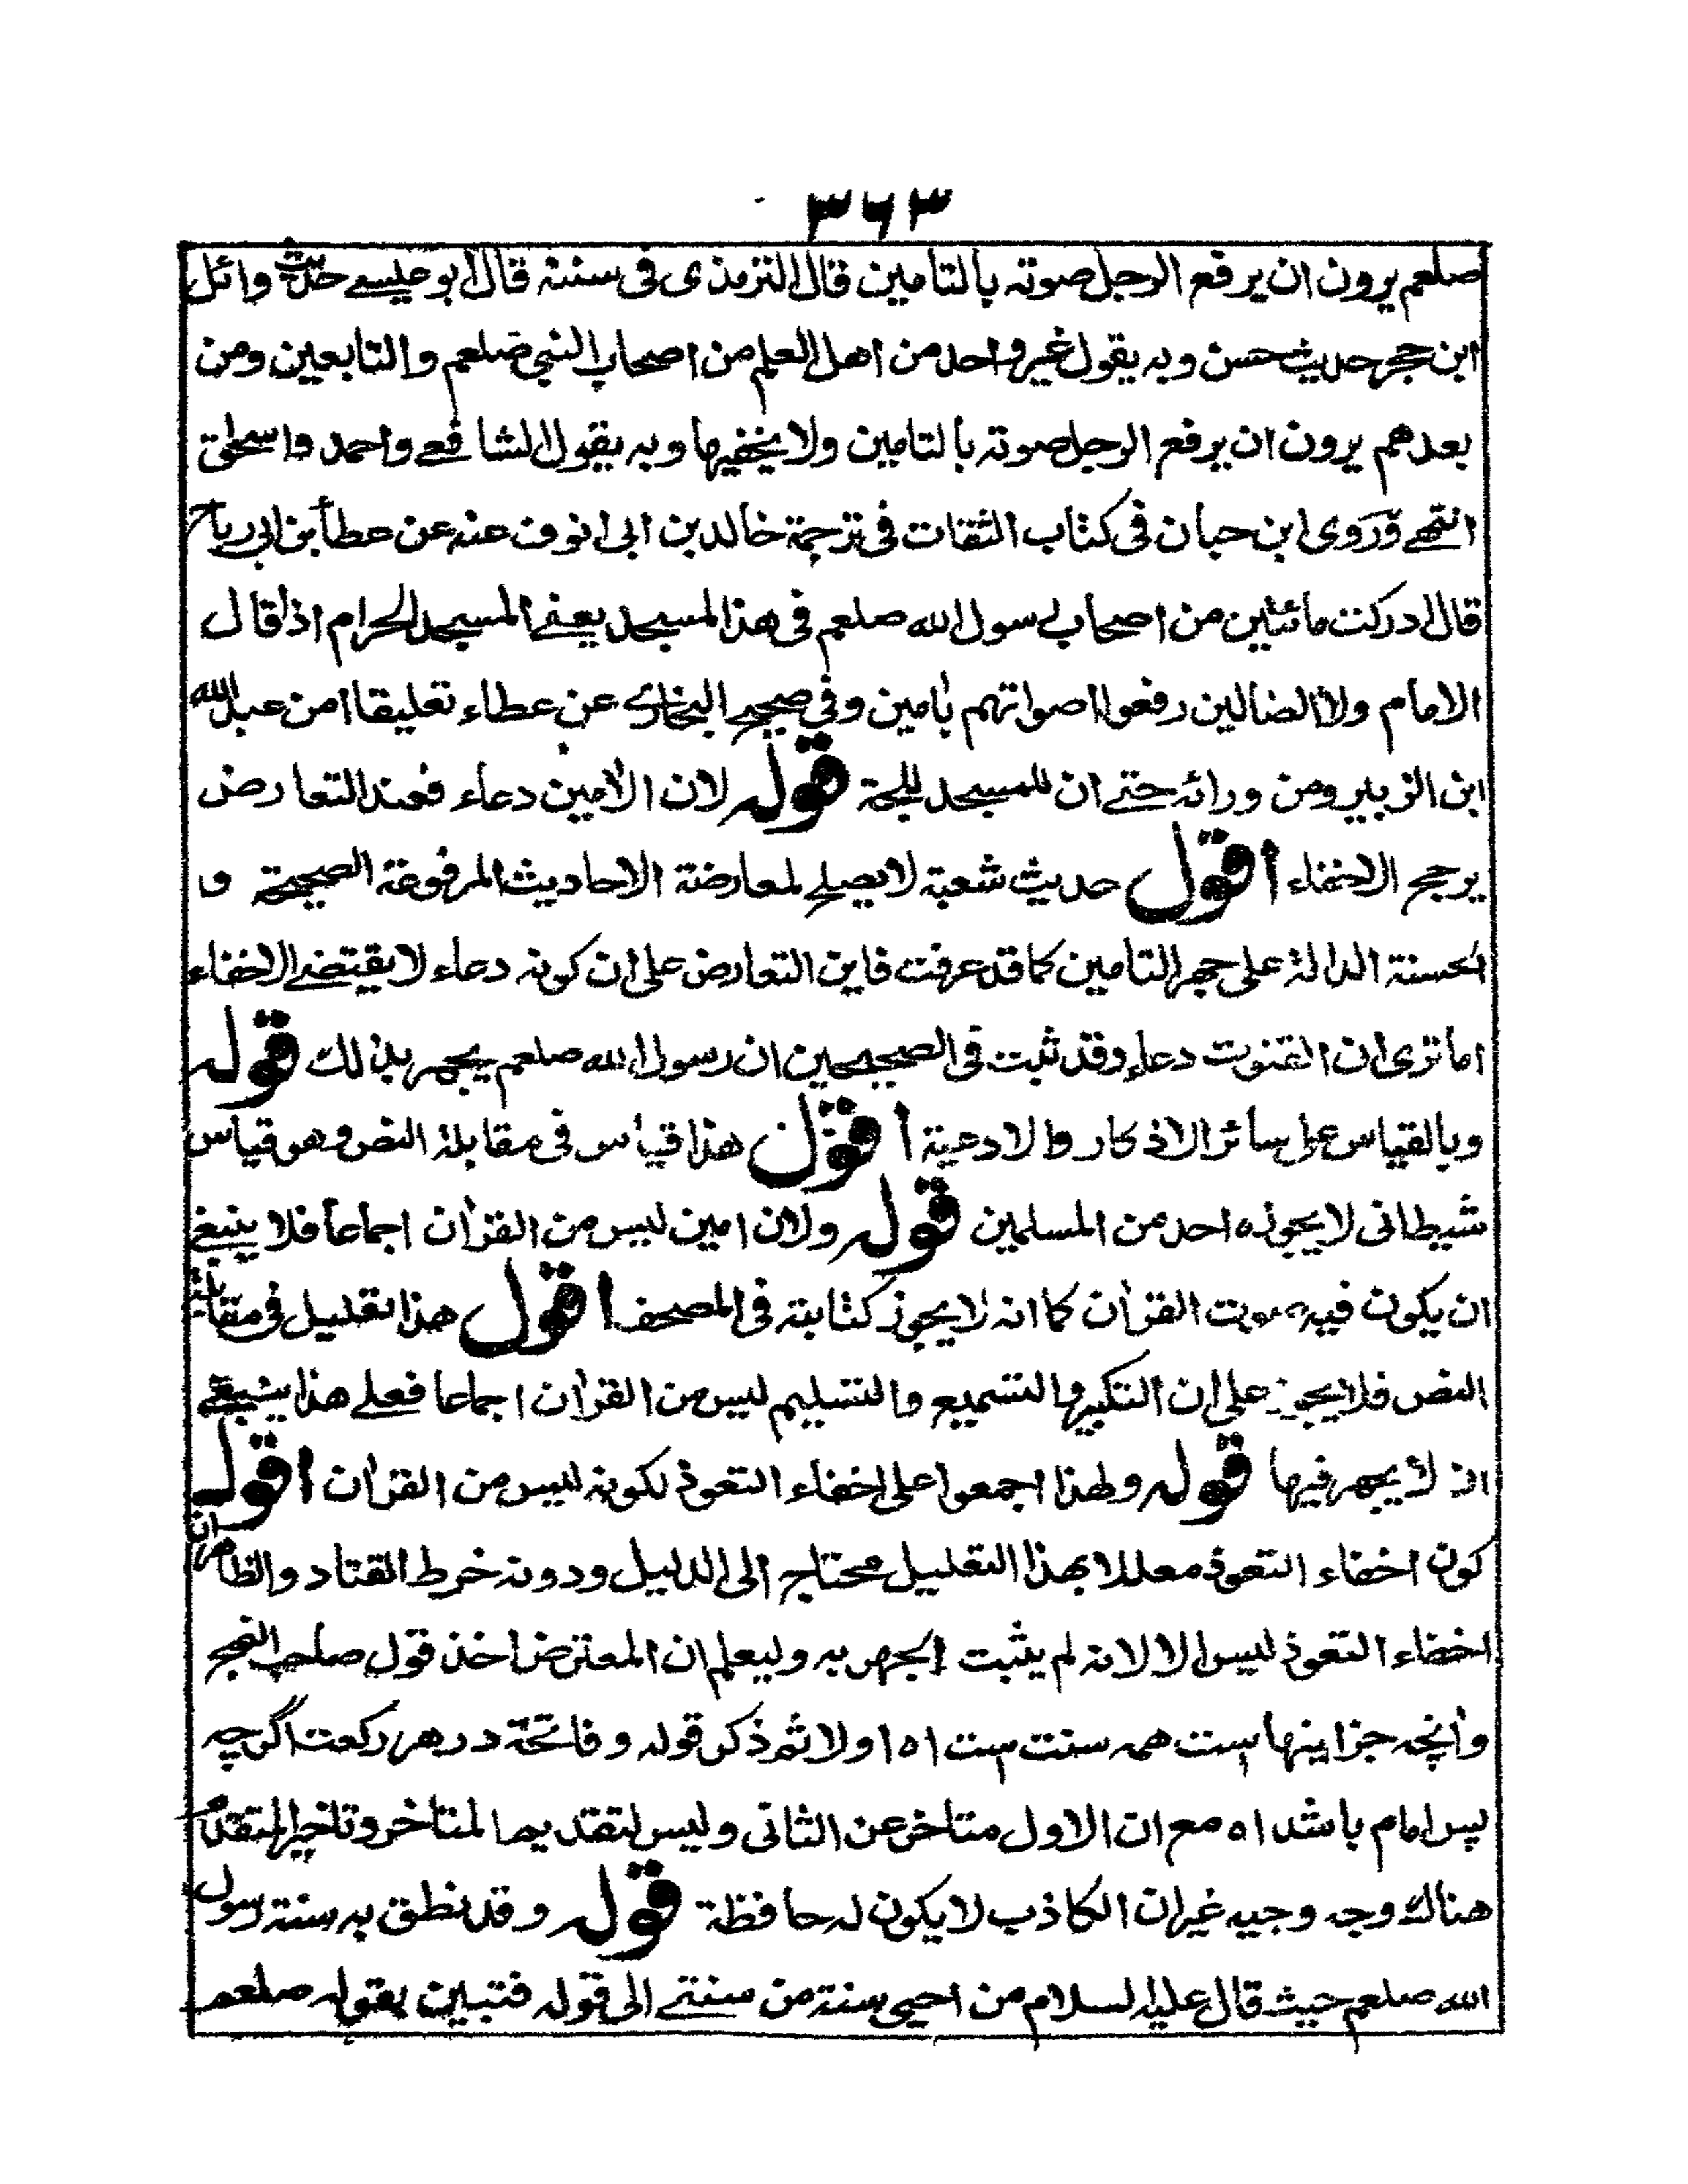 ٣٦٣
صلعم يرون ان يرفع الرجل صوته بالتامين قال الترمذى فى سننه قال ابو عيسے حديث وائل
ابن حجر حديث حسن وبه يقول غير واحد من اهل العلم من اصحاب النبي صلعم والتابعين ومن
بعدهم يرون ان يرفع الرجل صوته بالتامين ولا يخفيها وبه يقول الشافعے واحمد واسحٰق
انتهے وروى ابن حبان فى كتاب الثقات فى ترجمة خالد بن ابى انوف عنه عن عطأ بن ابي رباح
قال ادركت مائتين من اصحاب رسول الله صلعم فى هذا المسجد يعنے المسجد الحرام اذا قال
الامام ولا الضالين رفعوا اصواتهم بٰامين وفى صحيح البخارے عن عطاء تعليقا امن عبد الله
ابن الزبير ومن ورائه حتے ان للمسجد للجة قوله لان الاٰمين دعاء فعند التعارض
يرجح الاخفاء اقول حديث شعبة لا يصلح لمعارضة الاحاديث المرفوعة الصحيحة و
الحسنة الدالة على جهر التامين كما قد عرفت فاين التعارض على ان كونه دعاء لا يقتضے الاخفاء
اما ترى ان القنوت دعاء وقد ثبت فى الصحيحين ان رسول الله صلعم يجهر بذالك قوله
وبالقياس على سائر الاذكار والادعية اقول هذا قياس فى مقابلة النص وهو قياس
شيطانى لا يجوزه احد من المسلمين قوله ولان امين ليس من القرٰان اجماعا فلا ينبغے
ان يكون فيه صوت القرٰان كما انه لا يجوز كتابته فى المصحف اقول هذا تعليل فى مقابلة
النص فلا يجوز على ان التكبير والتسميع والتسليم ليس من القرٰان اجماعا فعلے هذا ينبغے
ان لا يجهر فيها قوله ولهذا اجمعوا على اخفاء التعوذ لكونه ليس من القرٰان اقول
كون اخفاء التعوذ معللا بهذا التعليل محتاج الى الدليل ودونه خرط القتاد والظاهر ان
اخفاء التعوذ ليس الا لانه لم يثبت الجهر به وليعلم ان المعترض اخذ قول صاحب النهج
وانچه جز اينها ست همه سنت ست اه اولا ثم ذكر قوله وفاتحة در هر ركعت اگرچه
پس امام باشد اه مع ان الاول متاخر عن الثانى وليس لتقديم المتاخر وتاخير المتقدم
هناك وجه وجيه غير ان الكاذب لا يكون له حافظة قوله وقد نطق به سنة رسول
الله صلعم حيث قال عليه السلام من احيى سنة من سنتے الى قوله فتبين بقوله صلعم